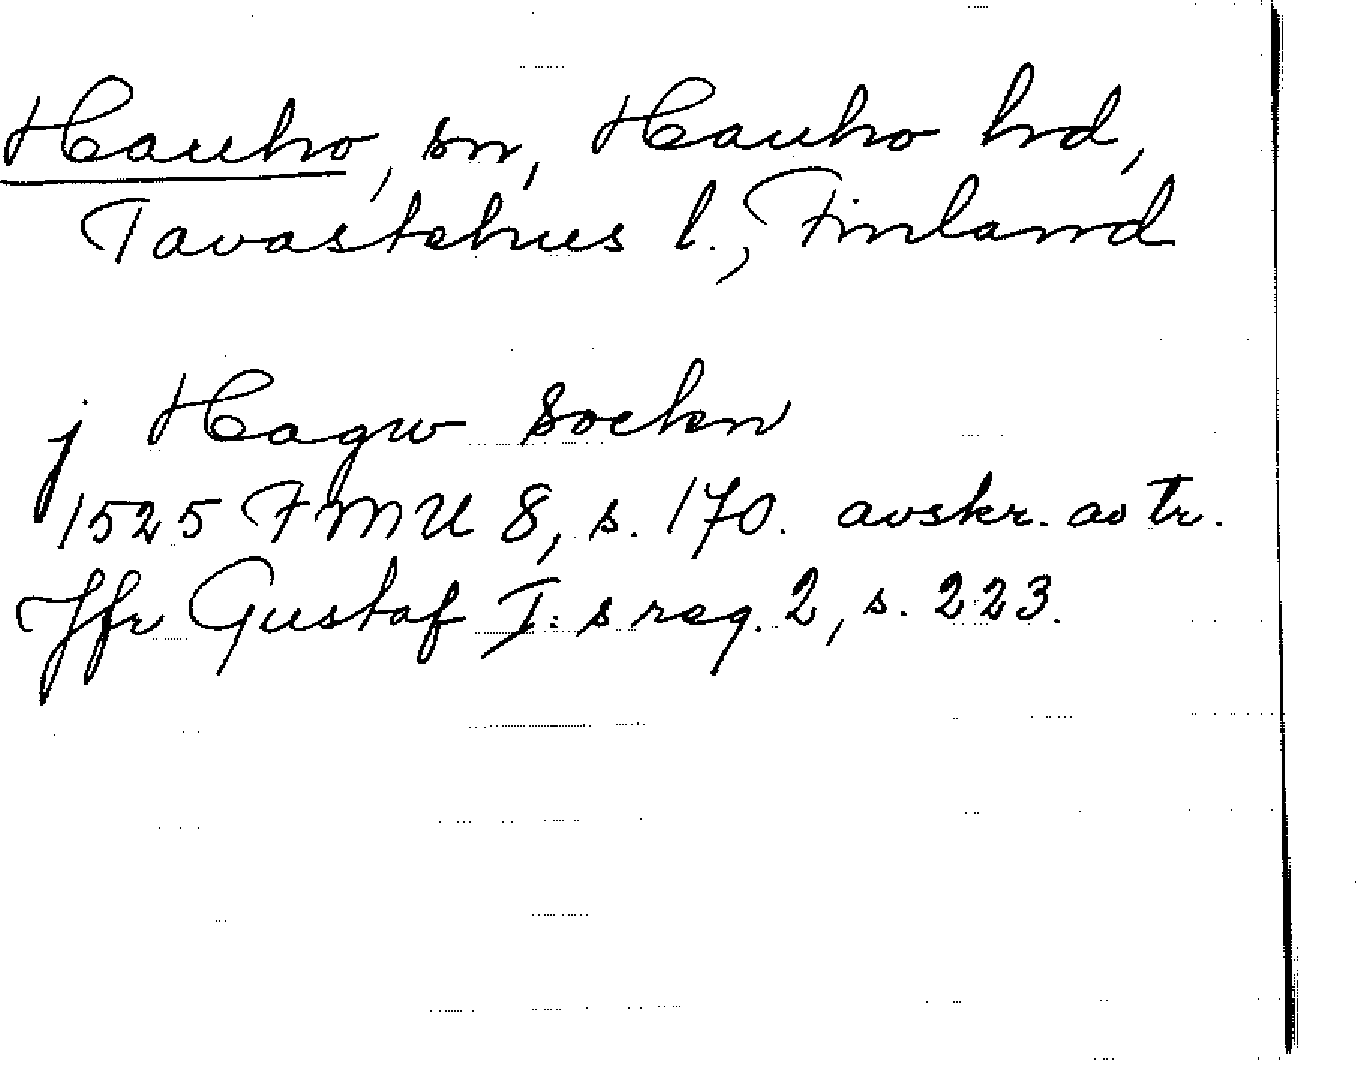 Hauho, sn, Hauho hrd,
Tavastehus l., Finland
j Hagw Sockn
1525 FMU 8, s. 170. avskr. av tr.
Jfr Gustaf I:s reg. 2, s. 223.